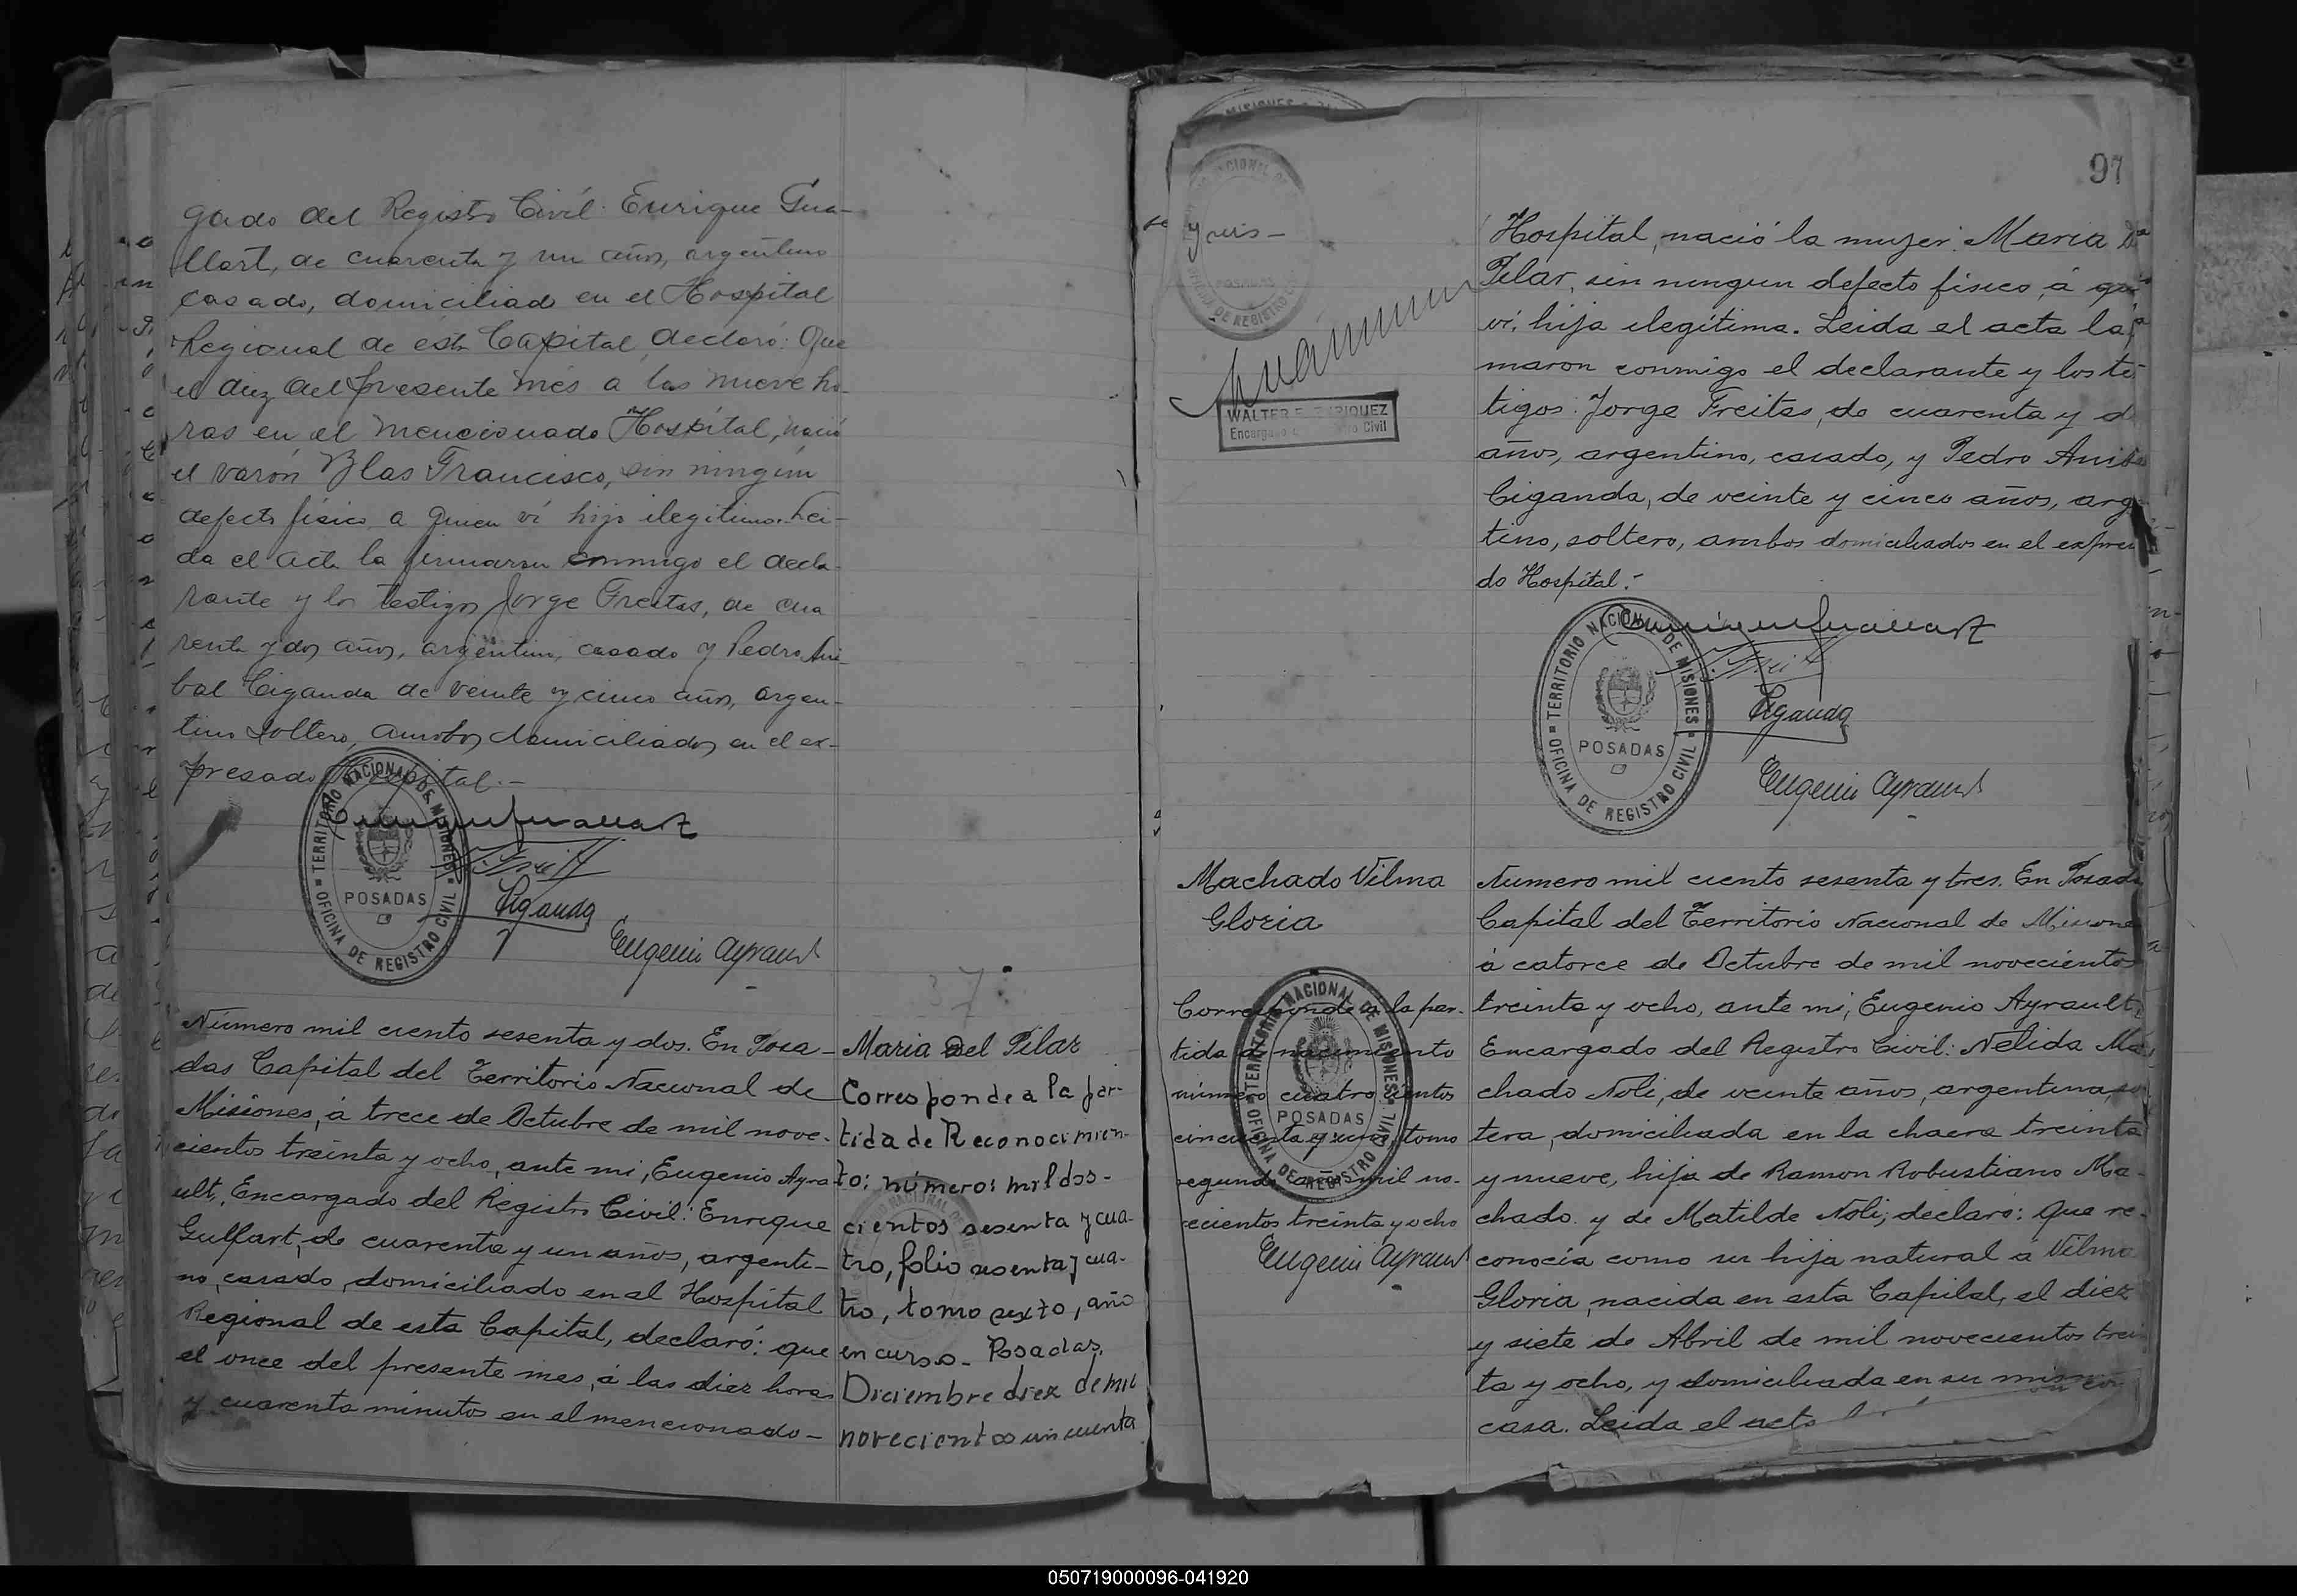 gado del Registro Civil: Enrique Gua-
llart, de cuarenta y un años, argentino
casado, domiciliado en el Hospital
Regional de esta Capital, declaró: Que
el diez del presente mes a las nueve ho-
ras en el mencionado Hospital, nació
el varón Blas Francisco, sin ningún
defecto físico a quien ví hijo ilegítimo. Lei-
da el acta la firmaron conmigo el decla-
rante y los testigos Jorge Freitas, de cua
renta y dos años, argentino, casado y Pedro Aní-
bal Ciganda de veinte y cinco años, argen-
tino soltero, ambos domiciliados en el ex-
presado Hospital.-
TERRITORIO NACIONAL DE MISIONES
POSADAS
OFICINA DE REGISTRO CIVIL
Ciganda
Eugenio Ayrault
Número mil ciento sesenta y dos. En Posa-
das Capital del Territorio Nacional de
Misiones, á trece de Octubre de mil nove-
cientos treinta y ocho, ante mi, Eugenio Ayra
ult, Encargado del Registro Civil: Enrique
Gullart, de cuarenta y un años, argenti-
no, casado, domiciliado en el Hospital
Regional de esta Capital, declaró: que
el once del presente mes, á las diez horas
y cuarenta minutos en el mencionado-
37
Maria Del Pilar
Corresponde a la par-
tida de Reconocimien-
to: número: mil dos-
cientos sesenta y cua-
tro, folio sesenta y cua-
tro, tomo sexto, año
en curso- Posadas,
Diciembre diez de mil
novecientos cincuenta
97
y seis-
POSADAS
DE REGISTRO
WALTER E. ENRIQUEZ
Encargado Civil
Hospital, nació la mujer: Maria
Pilar, sin ningun defecto físico, á
ví, hija ilegítima. Leida el acta la
maron conmigo el declarante y los te
tigos: Jorge Freitas, de cuarenta y d
años, argentino, casado, y Pedro Anib
Ciganda, de veinte y cinco años, arg
tino, soltero, ambos domiciliados en el expres
do Hospital.-
TERRITORIO NACIONAL DE MISIONES
POSADAS
OFICINA DE REGISTRO CIVIL
Ciganda
Eugenio Ayrault
Machado Vilma
Gloria
Corresponde a la par-
tida de nacimiento
número cuatrocientos
cincuenta y uno, tomo
segundo año mil no-
vecientos treinta y ocho
Eugenio Ayrault
TERRITORIO NACIONAL DE MISIONES
POSADAS
OFICINA DE REGISTRO CIVIL
Numero mil ciento sesenta y tres. En Posad
Capital del Territorio Nacional de Misione
á catorce de Octubre de mil novecientos
treinta y ocho, ante mi, Eugenio Ayrault,
Encargado del Registro Civil: Nélida Ma
chado Noli, de veinte años, argentina, so
tera, domiciliada en la chacra treinta
y nueve, hija de Ramon Robustiano Ma-
chado y de Matilde Noli; declaró: Que re-
conocía como su hija natural á Vilma
Gloria, nacida en esta Capital, el diez
y siete de Abril de mil novecientos trein
ta y ocho, y domiciliada en su misma
casa. Leida el acta
050719000096-041920